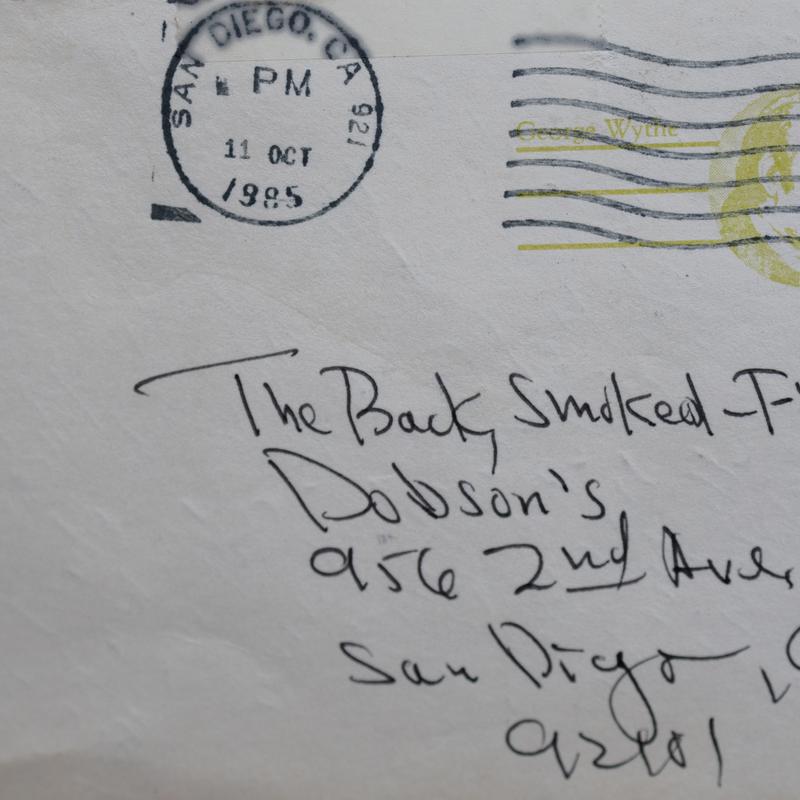 SAN DIEGO, CA 921
PM
11 OCT
1985
George Wythe
The Back, Smoked-F
Dobson's,
956 2nd Ave,
San Diego, C
92101